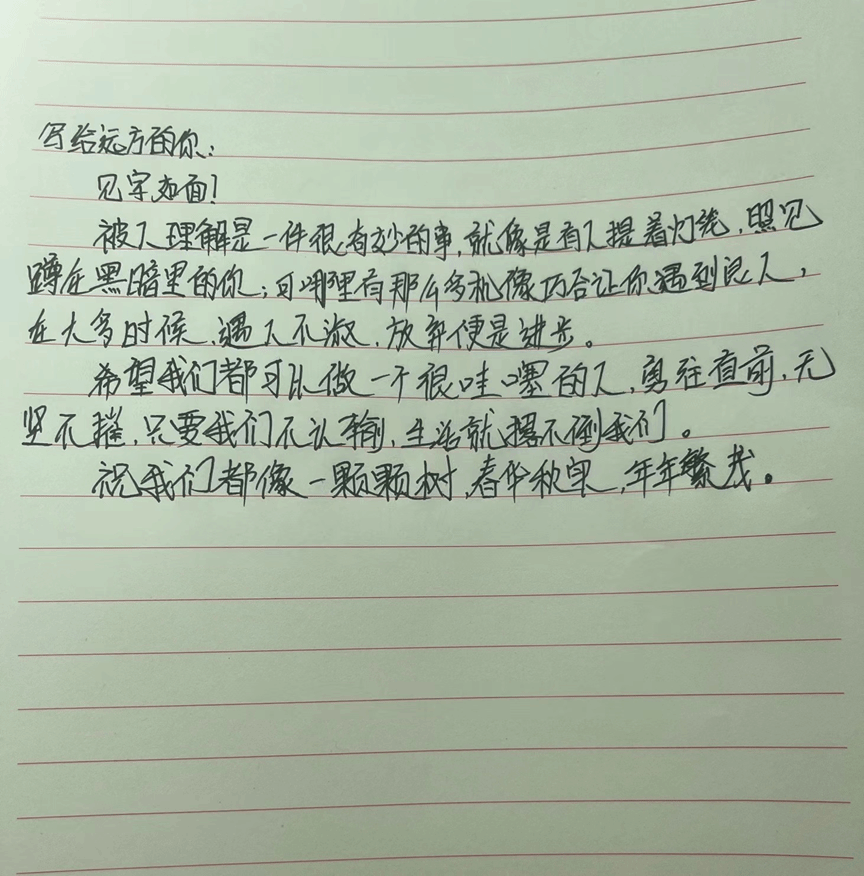 写给远方的你：
见字如面！
被人理解是一件很奇妙的事，就像是有人提着灯笼，照见
蹲在黑暗里的你；可哪里有那么多机缘巧合让你遇到良人，
在大多时候，遇人不淑，放弃便是进步。
希望我们都可以做一个很哇噻的人，勇往直前，无
坚不摧，只要我们不认输，生活就撂不倒我们。
祝我们都像一颗颗树，春华秋实，年年繁茂。